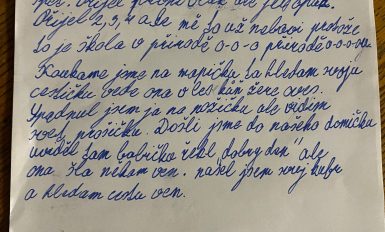 Přijel 2,3,4 ale mě to už nebaví protože
to je škola v přírodě o-o-o přírodě o-o-o
Koukáme jsme na mapičku, ta hledam svoju
cestičku vede ona v les kam žere oves.
Upadnul jsem ja na nožičku ale vidim
svet, prosička. Došli jsme do našeho domičku
uviděl sam babičku řekl "dobry den" ale
ona šla nekam ven. našel jsem svoj kufr
a hledam cestu ven.